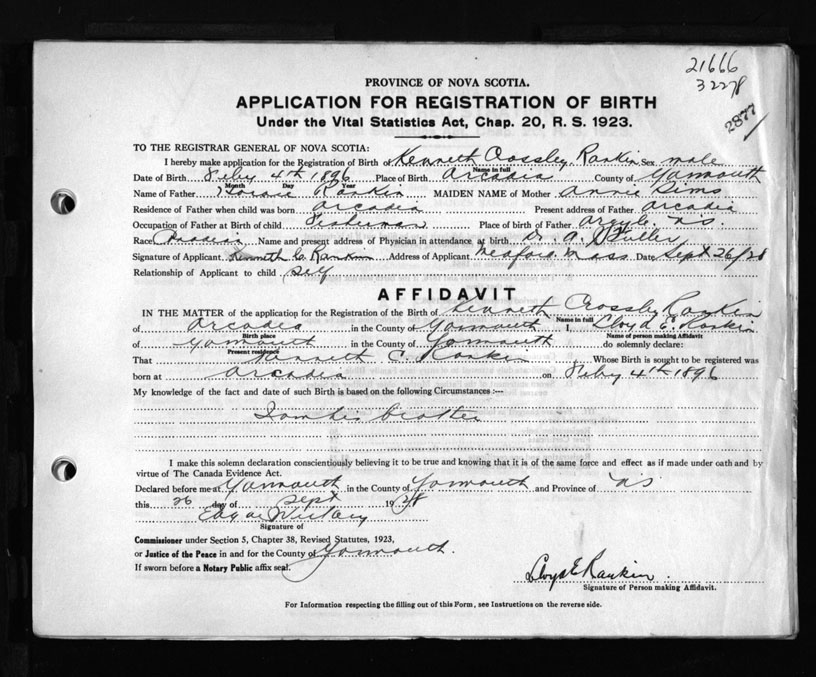 21666
32278
2877
PROVINCE OF NOVA SCOTIA.
APPLICATION FOR REGISTRATION OF BIRTH
Under the Vital Statistics Act, Chap. 20, R. S. 1923.
TO THE REGISTRAR GENERAL OF NOVA SCOTIA:
I hereby make application for the Registration of Birth of Kenneth Crossley Rankin Sex male
Name in full
Date of Birth Feby 4th 1896 Place of Birth Arcadia County of Yarmouth
Month Day Year
Name of Father Rankin MAIDEN NAME of Mother Annie Sims
Residence of Father when child was born Arcadia Present address of Father Arcadia
Occupation of Father at Birth of child Fisherman Place of birth of Father Argyle NS.
Race Name and present address of Physician in attendance at birth Dr. A. Fuller
Signature of Applicant Kenneth C. Rankin Address of Applicant Medford Mass Date Sept 26/28
Relationship of Applicant to child self
AFFIDAVIT
IN THE MATTER of the application for the Registration of the Birth of Kenneth Crossley Rankin
Name in full
of Arcadia in the County of Yarmouth I, Lloyd E. Rankin
Birth place Name of person making Affidavit
of Yarmouth in the County of Yarmouth do solemnly declare:
Present residence
That Kenneth C. Rankin Whose Birth is sought to be registered was
born at Arcadia on Feby 4th 1896
My knowledge of the fact and date of such Birth is based on the following Circumstances :—
I am his brother
I make this solemn declaration conscientiously believing it to be true and knowing that it is of the same force and effect as if made under oath and by
virtue of The Canada Evidence Act.
Declared before me at Yarmouth in the County of Yarmouth and Province of NS
this 26 day of Sept 1928
Edgar
Signature of
Commissioner under Section 5, Chapter 38, Revised Statutes, 1923,
or Justice of the Peace in and for the County of Yarmouth.
If sworn before a Notary Public affix seal.
Lloyd E Rankin.
Signature of Person making Affidavit.
For Information respecting the filling out of this Form, see Instructions on the reverse side.